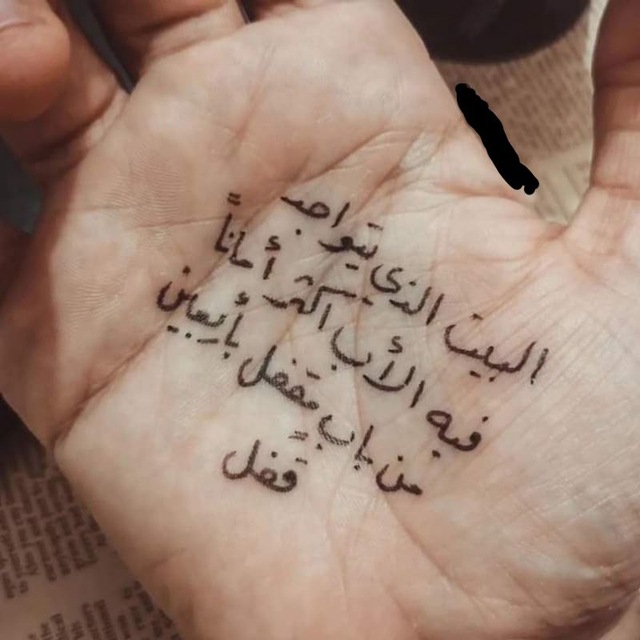 البيت الذي يتواجد
فيه الأب اكثر أماناً
من باب مقفل بأربعين
قفل